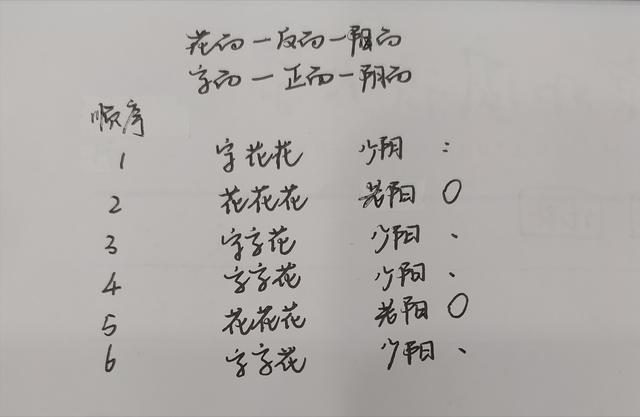 花面一反面一阳面
字面一正面一阴面
顺序
1 字花花 少阴 :
2 花花花 老阳 O
3 字字花 少阳 、
4 字字花 少阳 、
5 花花花 老阳 O
6 字字花 少阳 、